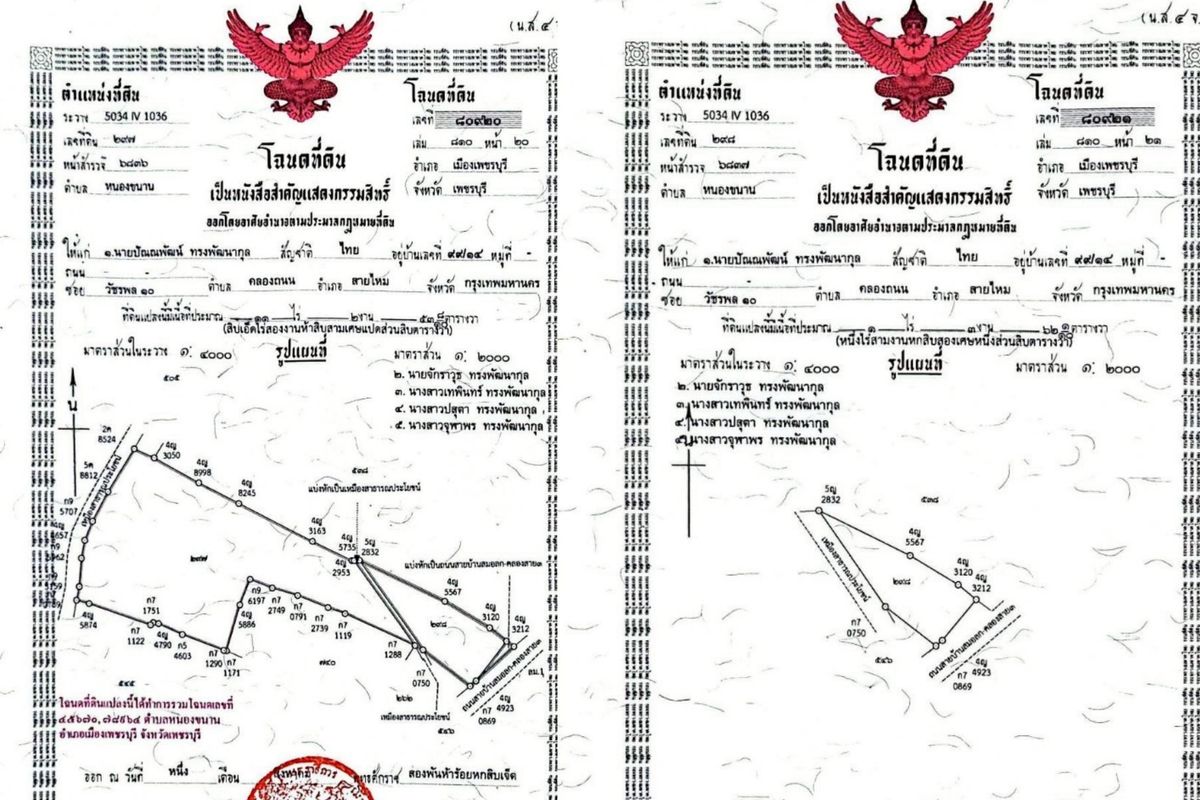 (น.ส.๔
ตำแหน่งที่ดิน
ระวาง 5034 IV 1036
เลขที่ดิน ๒๙๗
หน้าสำรวจ ๖๘๓๖
ตำบล หนองขนาน
โฉนดที่ดิน
เลขที่ ๘๐๙๒๐
เล่ม ๘๑๐ หน้า ๒๐
อำเภอ เมืองเพชรบุรี
จังหวัด เพชรบุรี
โฉนดที่ดิน
เป็นหนังสือสำคัญแสดงกรรมสิทธิ์
ออกโดยอาศัยอำนาจตามประมวลกฎหมายที่ดิน
ให้แก่ ๑.นายปัณณพัฒน์ ทรงพัฒนากุล สัญชาติ ไทย อยู่บ้านเลขที่ ๙๙/๑๔ หมู่ที่ -
ถนน -
ซอย วัชรพล ๑๐ ตำบล คลองถนน อำเภอ สายไหม จังหวัด กรุงเทพมหานคร
ที่ดินแปลงนี้มีเนื้อที่ประมาณ ๑๑ ไร่ ๒ งาน ๕๓ ๘/๑๐ ตารางวา
(สิบเอ็ดไร่สองงานห้าสิบสามเศษแปดส่วนสิบตารางวา)
มาตราส่วนในระวาง ๑: ๔๐๐๐ รูปแผนที่ มาตราส่วน ๑: ๒๐๐๐
๒. นายจักราวุธ ทรงพัฒนากุล
๓. นางสาวเทพินทร์ ทรงพัฒนากุล
๔. นางสาวปสุตา ทรงพัฒนากุล
๕. นางสาวจุฬาพร ทรงพัฒนากุล
๕๐๕
น
2ค
8524
5ค
8812
ก9
5707
เหมืองสาธารณประโยชน์
4ญ
3050
4ญ
8998
4ญ
8245
4ญ
3163
๕๓๘
แบ่งหักเป็นเหมืองสาธารณประโยชน์
4ญ
5735
5ญ
2832
4ญ
2953
แบ่งหักเป็นถนนสายบ้านสมอลก-คลองสาย๓
4ญ
5567
4ญ
3120
4ญ
3212
๒๙๗
๒๙๘
4ญ
5874
ก7
1751
ก7
1122
4ญ
4790
ก5
4603
ก7
1290
ก7
1171
ก9
6197
4ญ
5886
ก7
2749
ก7
0791
ก7
2739
ก7
1119
ก7
1288
๗๔๐
ก7
0750
๒๖๒
เหมืองสาธารณประโยชน์
๕๔๖
ถนนสายบ้านสมอลก-คลองสาย๓
4ญ
4923
ก7
0869
๕๔๕
โฉนดที่ดินแปลงนี้ได้ทำการรวมโฉนดเลขที่
๔๕๖๗๐, ๗๘๙๖๔ ตำบลหนองขนาน
อำเภอเมืองเพชรบุรี จังหวัดเพชรบุรี
ออก ณ วันที่ หนึ่ง เดือน สิงหาคม พุทธศักราช สองพันห้าร้อยหกสิบเจ็ด
(น.ส.๔ จ.
ตำแหน่งที่ดิน
ระวาง 5034 IV 1036
เลขที่ดิน ๒๙๘
หน้าสำรวจ ๖๘๓๗
ตำบล หนองขนาน
โฉนดที่ดิน
เลขที่ ๘๐๙๒๑
เล่ม ๘๑๐ หน้า ๒๑
อำเภอ เมืองเพชรบุรี
จังหวัด เพชรบุรี
โฉนดที่ดิน
เป็นหนังสือสำคัญแสดงกรรมสิทธิ์
ออกโดยอาศัยอำนาจตามประมวลกฎหมายที่ดิน
ให้แก่ ๑.นายปัณณพัฒน์ ทรงพัฒนากุล สัญชาติ ไทย อยู่บ้านเลขที่ ๙๙/๑๔ หมู่ที่ -
ถนน -
ซอย วัชรพล ๑๐ ตำบล คลองถนน อำเภอ สายไหม จังหวัด กรุงเทพมหานคร
ที่ดินแปลงนี้มีเนื้อที่ประมาณ ๑ ไร่ ๓ งาน ๖๒ ๑/๑๐ ตารางวา
(หนึ่งไร่สามงานหกสิบสองเศษหนึ่งส่วนสิบตารางวา)
มาตราส่วนในระวาง ๑: ๔๐๐๐ รูปแผนที่ มาตราส่วน ๑: ๒๐๐๐
๒. นายจักราวุธ ทรงพัฒนากุล
๓. นางสาวเทพินทร์ ทรงพัฒนากุล
๔. นางสาวปสุตา ทรงพัฒนากุล
๕. นางสาวจุฬาพร ทรงพัฒนากุล
5ญ
2832
๕๓๘
4ญ
5567
4ญ
3120
4ญ
3212
เหมืองสาธารณประโยชน์
๒๙๘
ก7
0750
๕๔๖
ถนนสายบ้านสมอลก-คลองสาย๓
4ญ
4923
ก7
0869